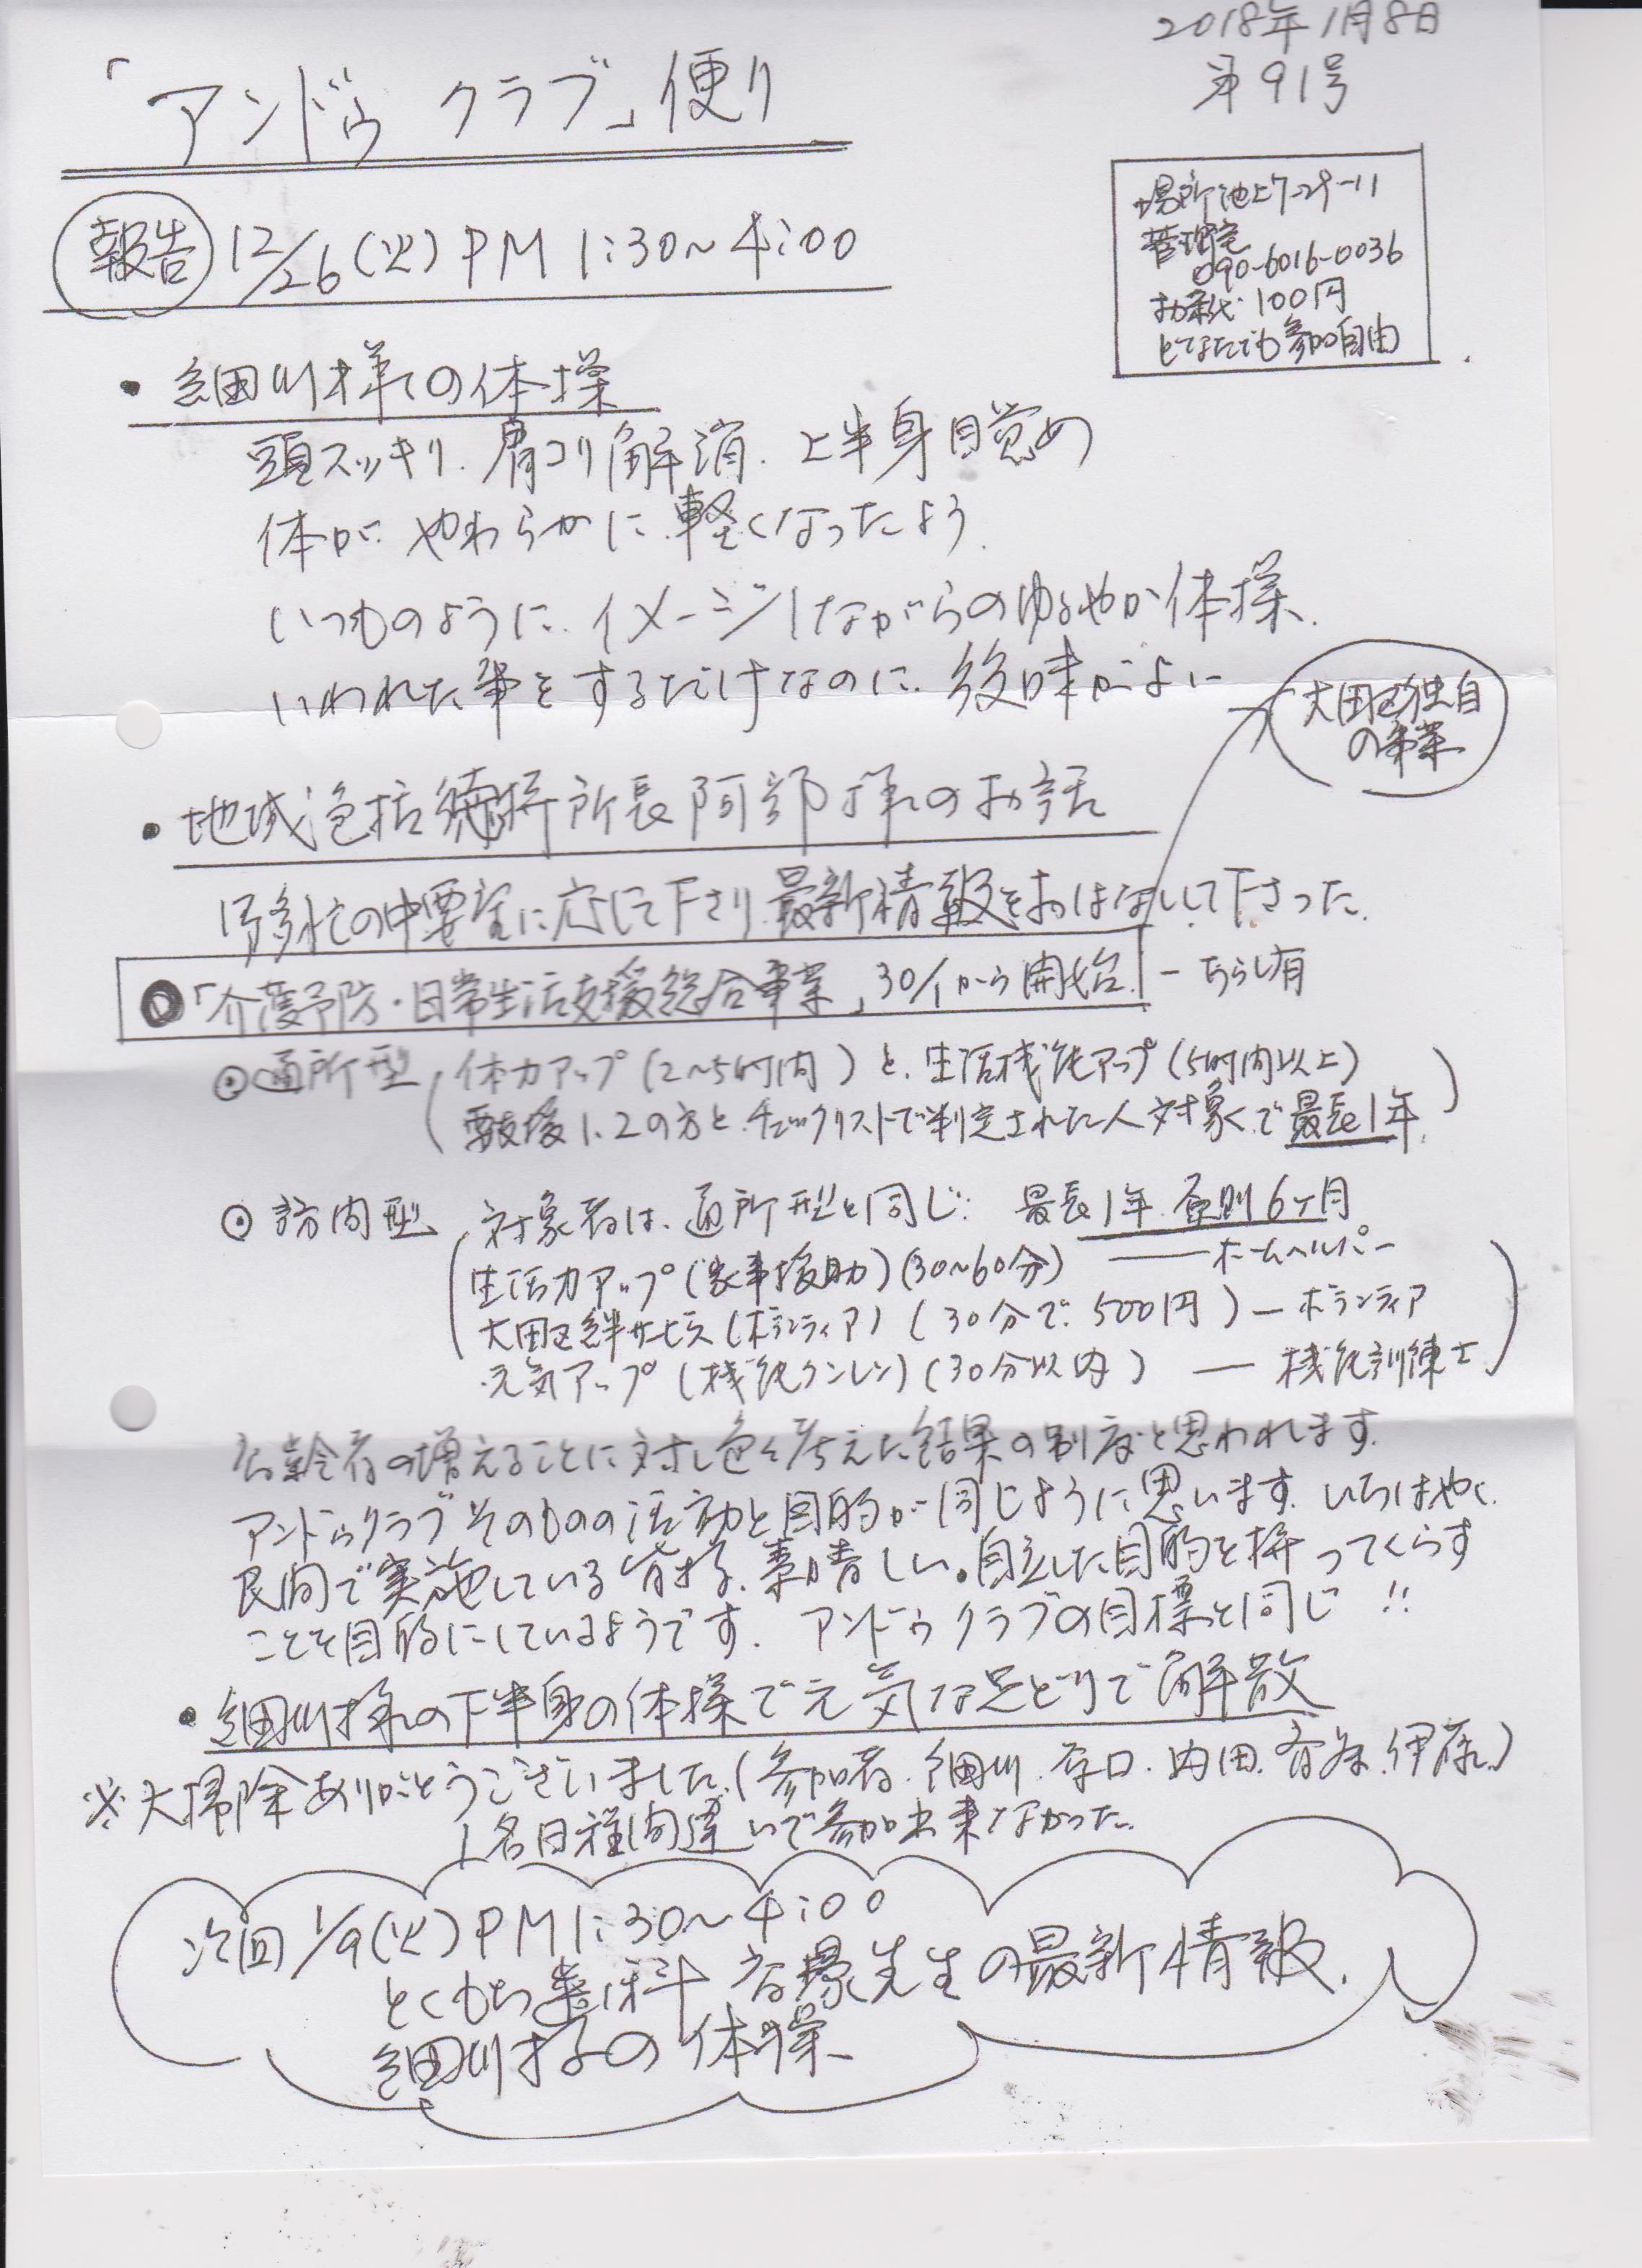 2018年1月8日
第91号
「アンドゥ クラブ」便り
場所 池上7-29-11
管理室
090-6016-0036
お茶代 100円
どなたでも参加自由
報告 12/26(火) PM 1:30〜4:00
・細川様の体操
頭スッキリ、肩コリ解消、上半身目覚め
体が、やわらかに、軽くなったよう
いつものように、イメージしながらのゆるやか体操、
いわれた事をするだけなのに、後味がよい
大田区独自
の事業
・地域包括徳持所長阿部様のお話
多忙の中要望に応じて下さり、最新情報をおはなしして下さった。
◎「介護予防・日常生活支援総合事業」30/1から開始 ーちらし有
⊙通所型 体力アップ(2〜5時間)と、生活機能アップ(5時間以上)
要支援1、2の方と、チェックリストで判定された人対象で最長1年
⊙訪問型 対象者は、通所型と同じ: 最長1年 原則6ヶ月
生活力アップ(家事援助)(30〜60分) ―― ホームヘルパー
大田区絆サービス(ボランティア)(30分で、500円) ― ボランティア
元気アップ(機能クンレン)(30分以内) ― 機能訓練士
高齢者の増えることに対し色々考えた結果の制度と思われます。
アンドゥクラブそのものの活動と目的が同じように思います。いちはやく、
民間で実施している皆様、素晴しい。自立した目的を持ってくらす
ことを目的にしているようです。 アンドゥクラブの目標と同じ!!
・細川様の下半身の体操で元気な足どりで解散
※大掃除ありがとうございました。(参加者、細川、 内田、 伊藤)
1名日程間違いで参加出来なかった。
次回 1/9(火) PM1:30〜4:00
とくもち歯科 先生の最新情報、
細川様の体操